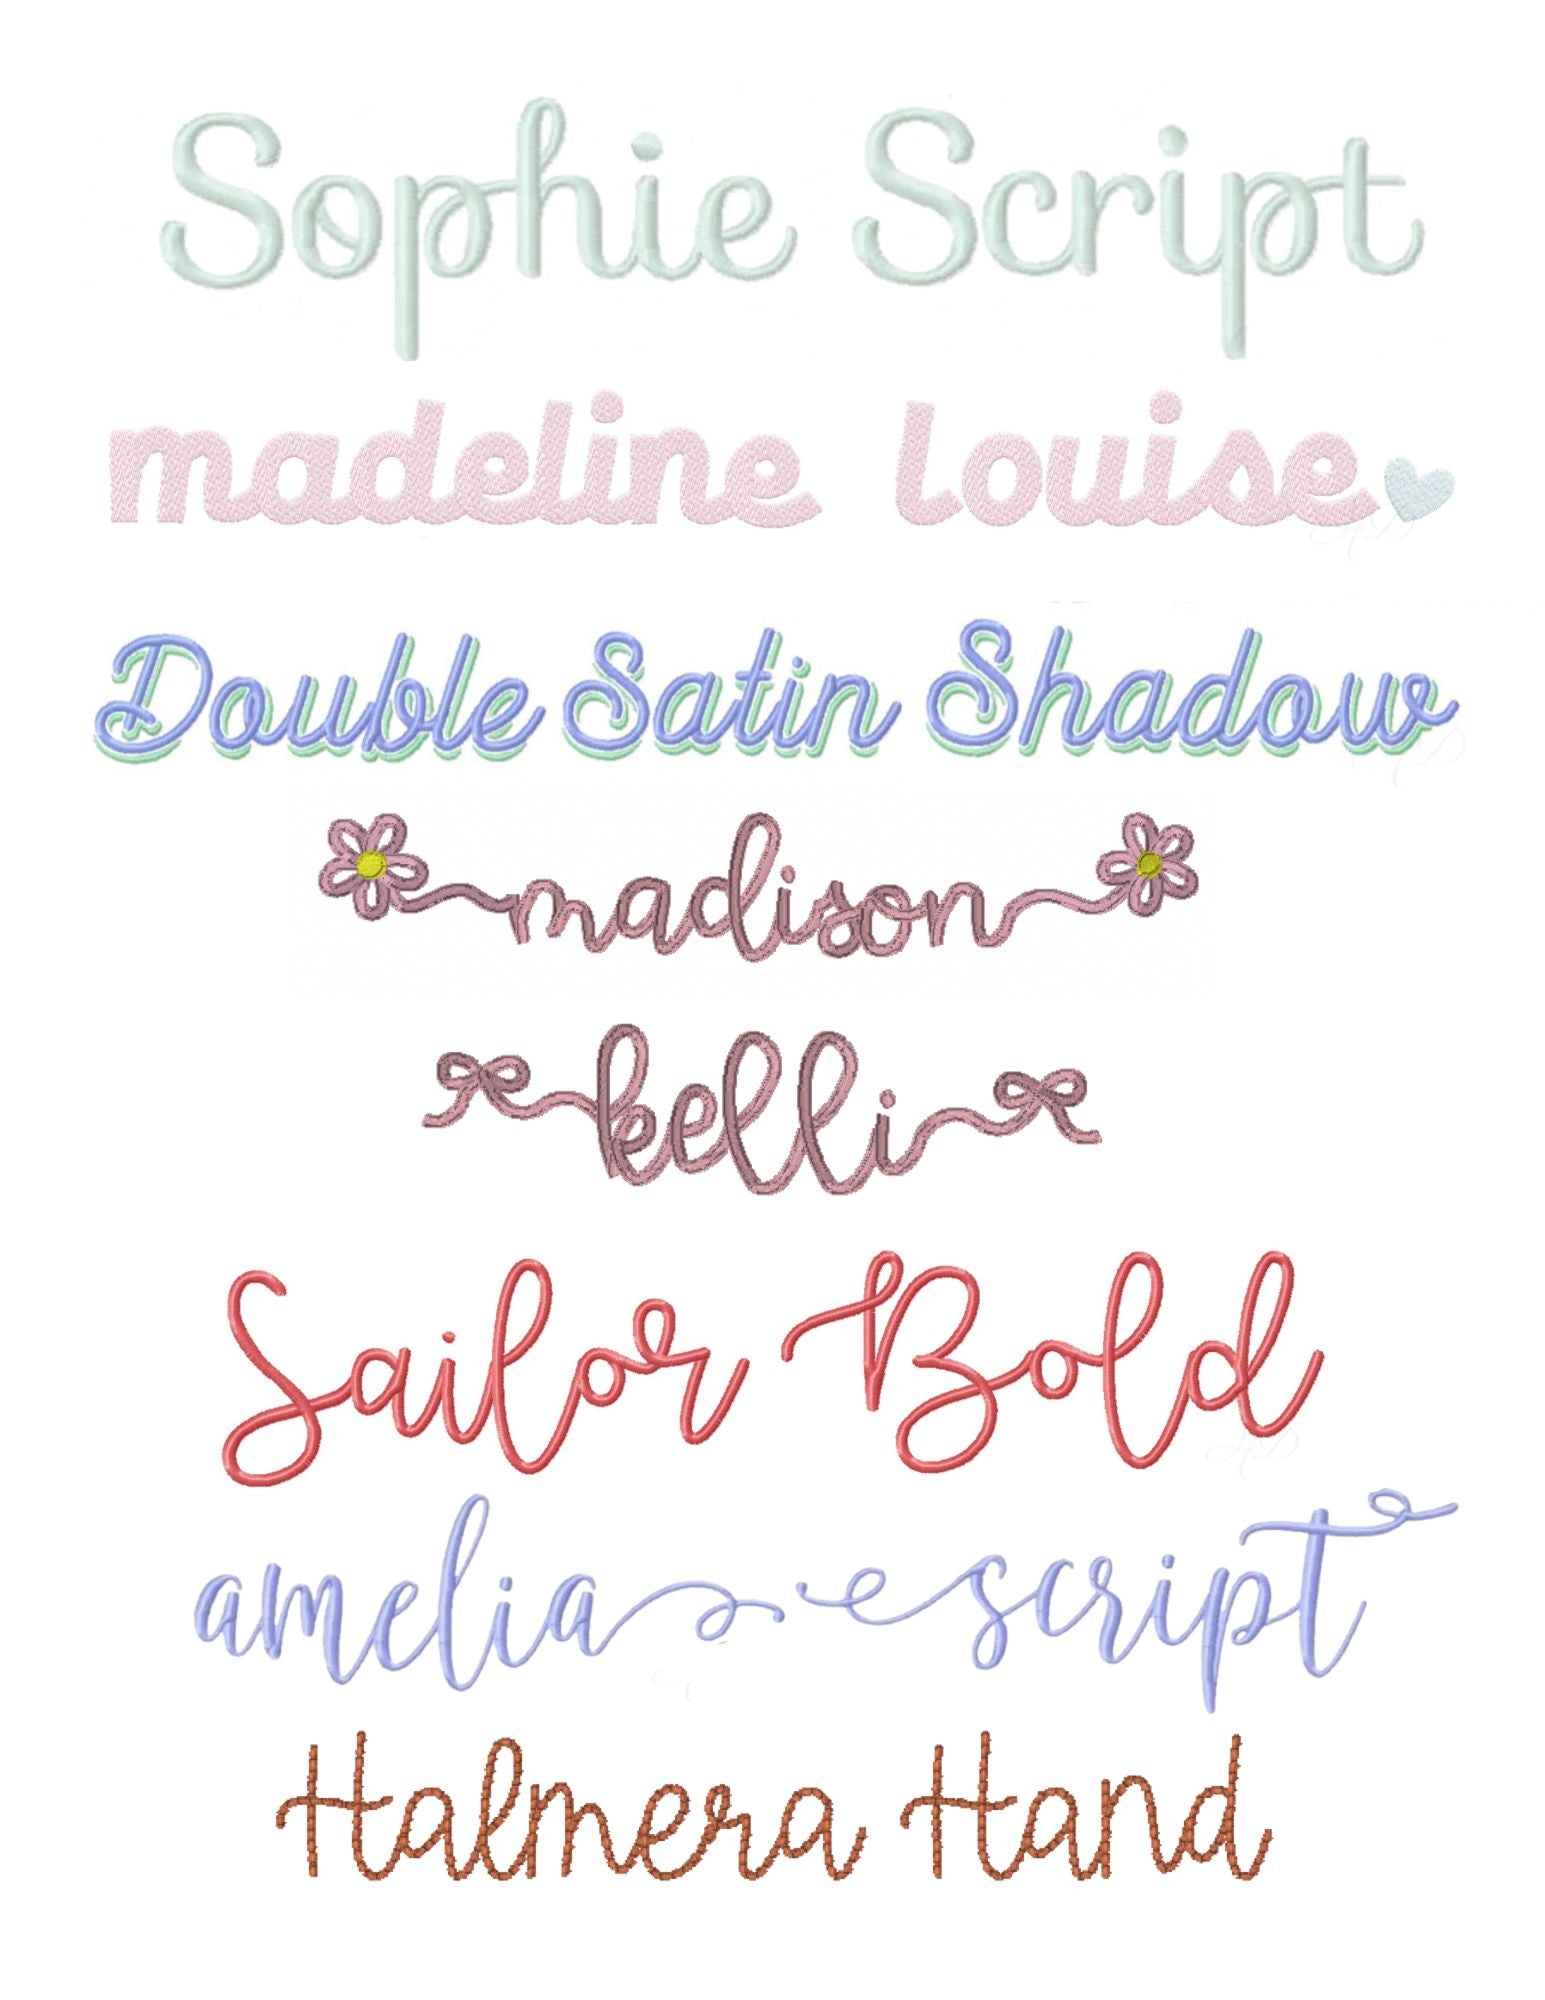 Sophie Script
madeline louise
Double Satin Shadow
madison
kelli
Sailor Bold
amelia script
Halmera Hand